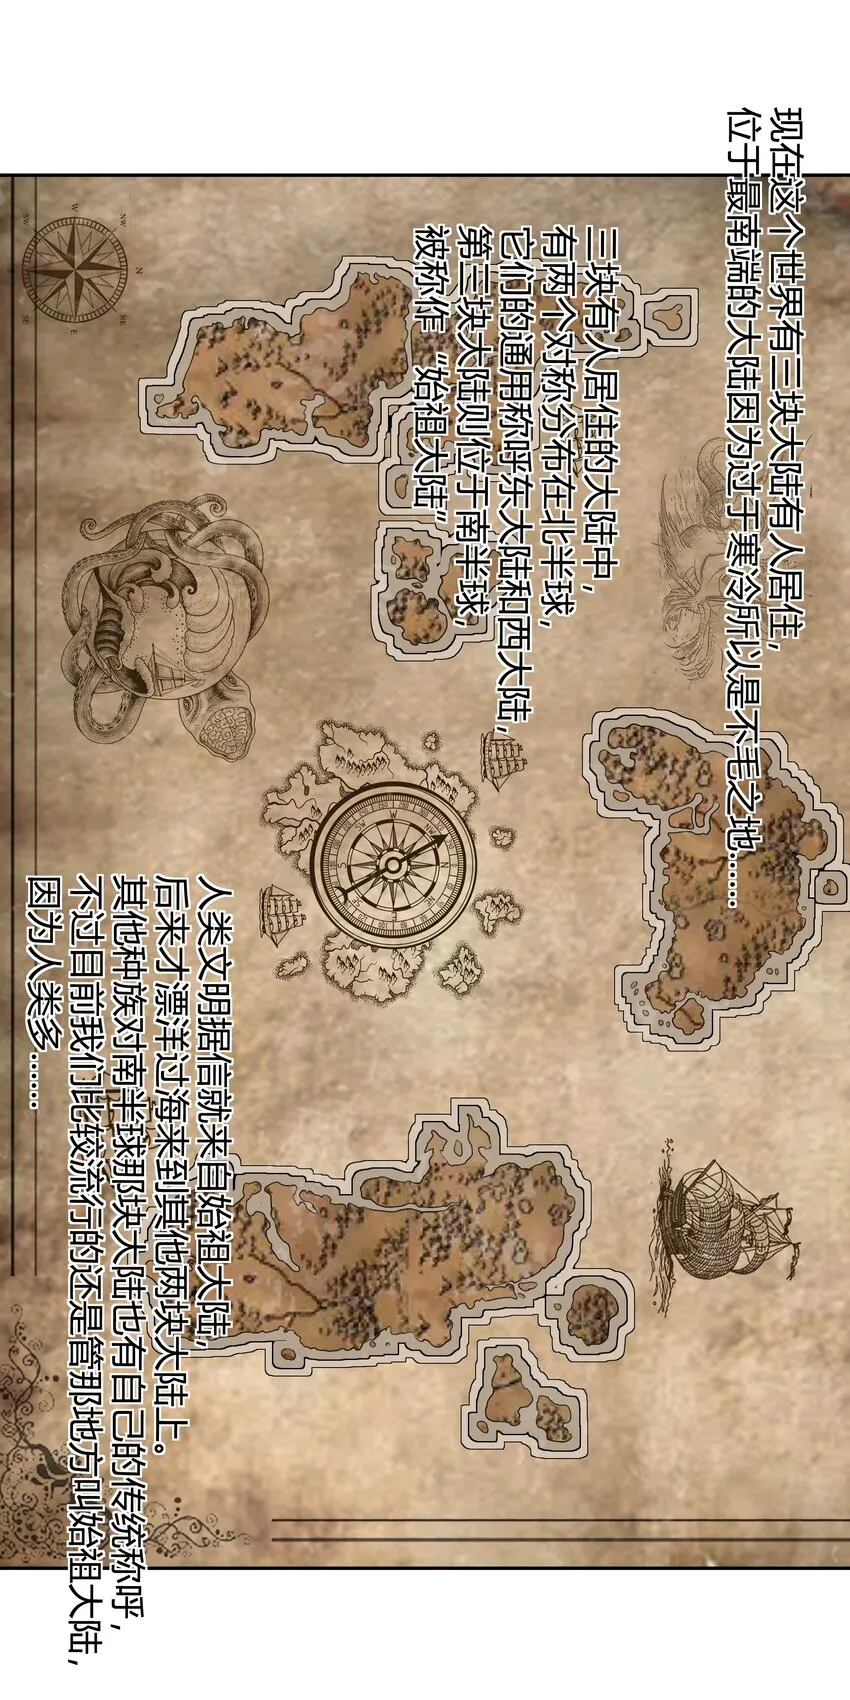 现在这个世界有三块大陆有人居住，
位于最南端的大陆因为过于寒冷所以是不毛之地……
三块有人居住的大陆中，
有两个对称分布在北半球，
它们的通用称呼东大陆和西大陆，
第三块大陆则位于南半球，
被称作“始祖大陆”
人类文明据信就来自始祖大陆，
后来才漂洋过海来到其他两块大陆上。
其他种族对南半球那块大陆也有自己的传统称呼，
不过目前我们比较流行的还是管那地方叫始祖大陆，
因为人类多……
N
NE
E
SE
SW
W
NW